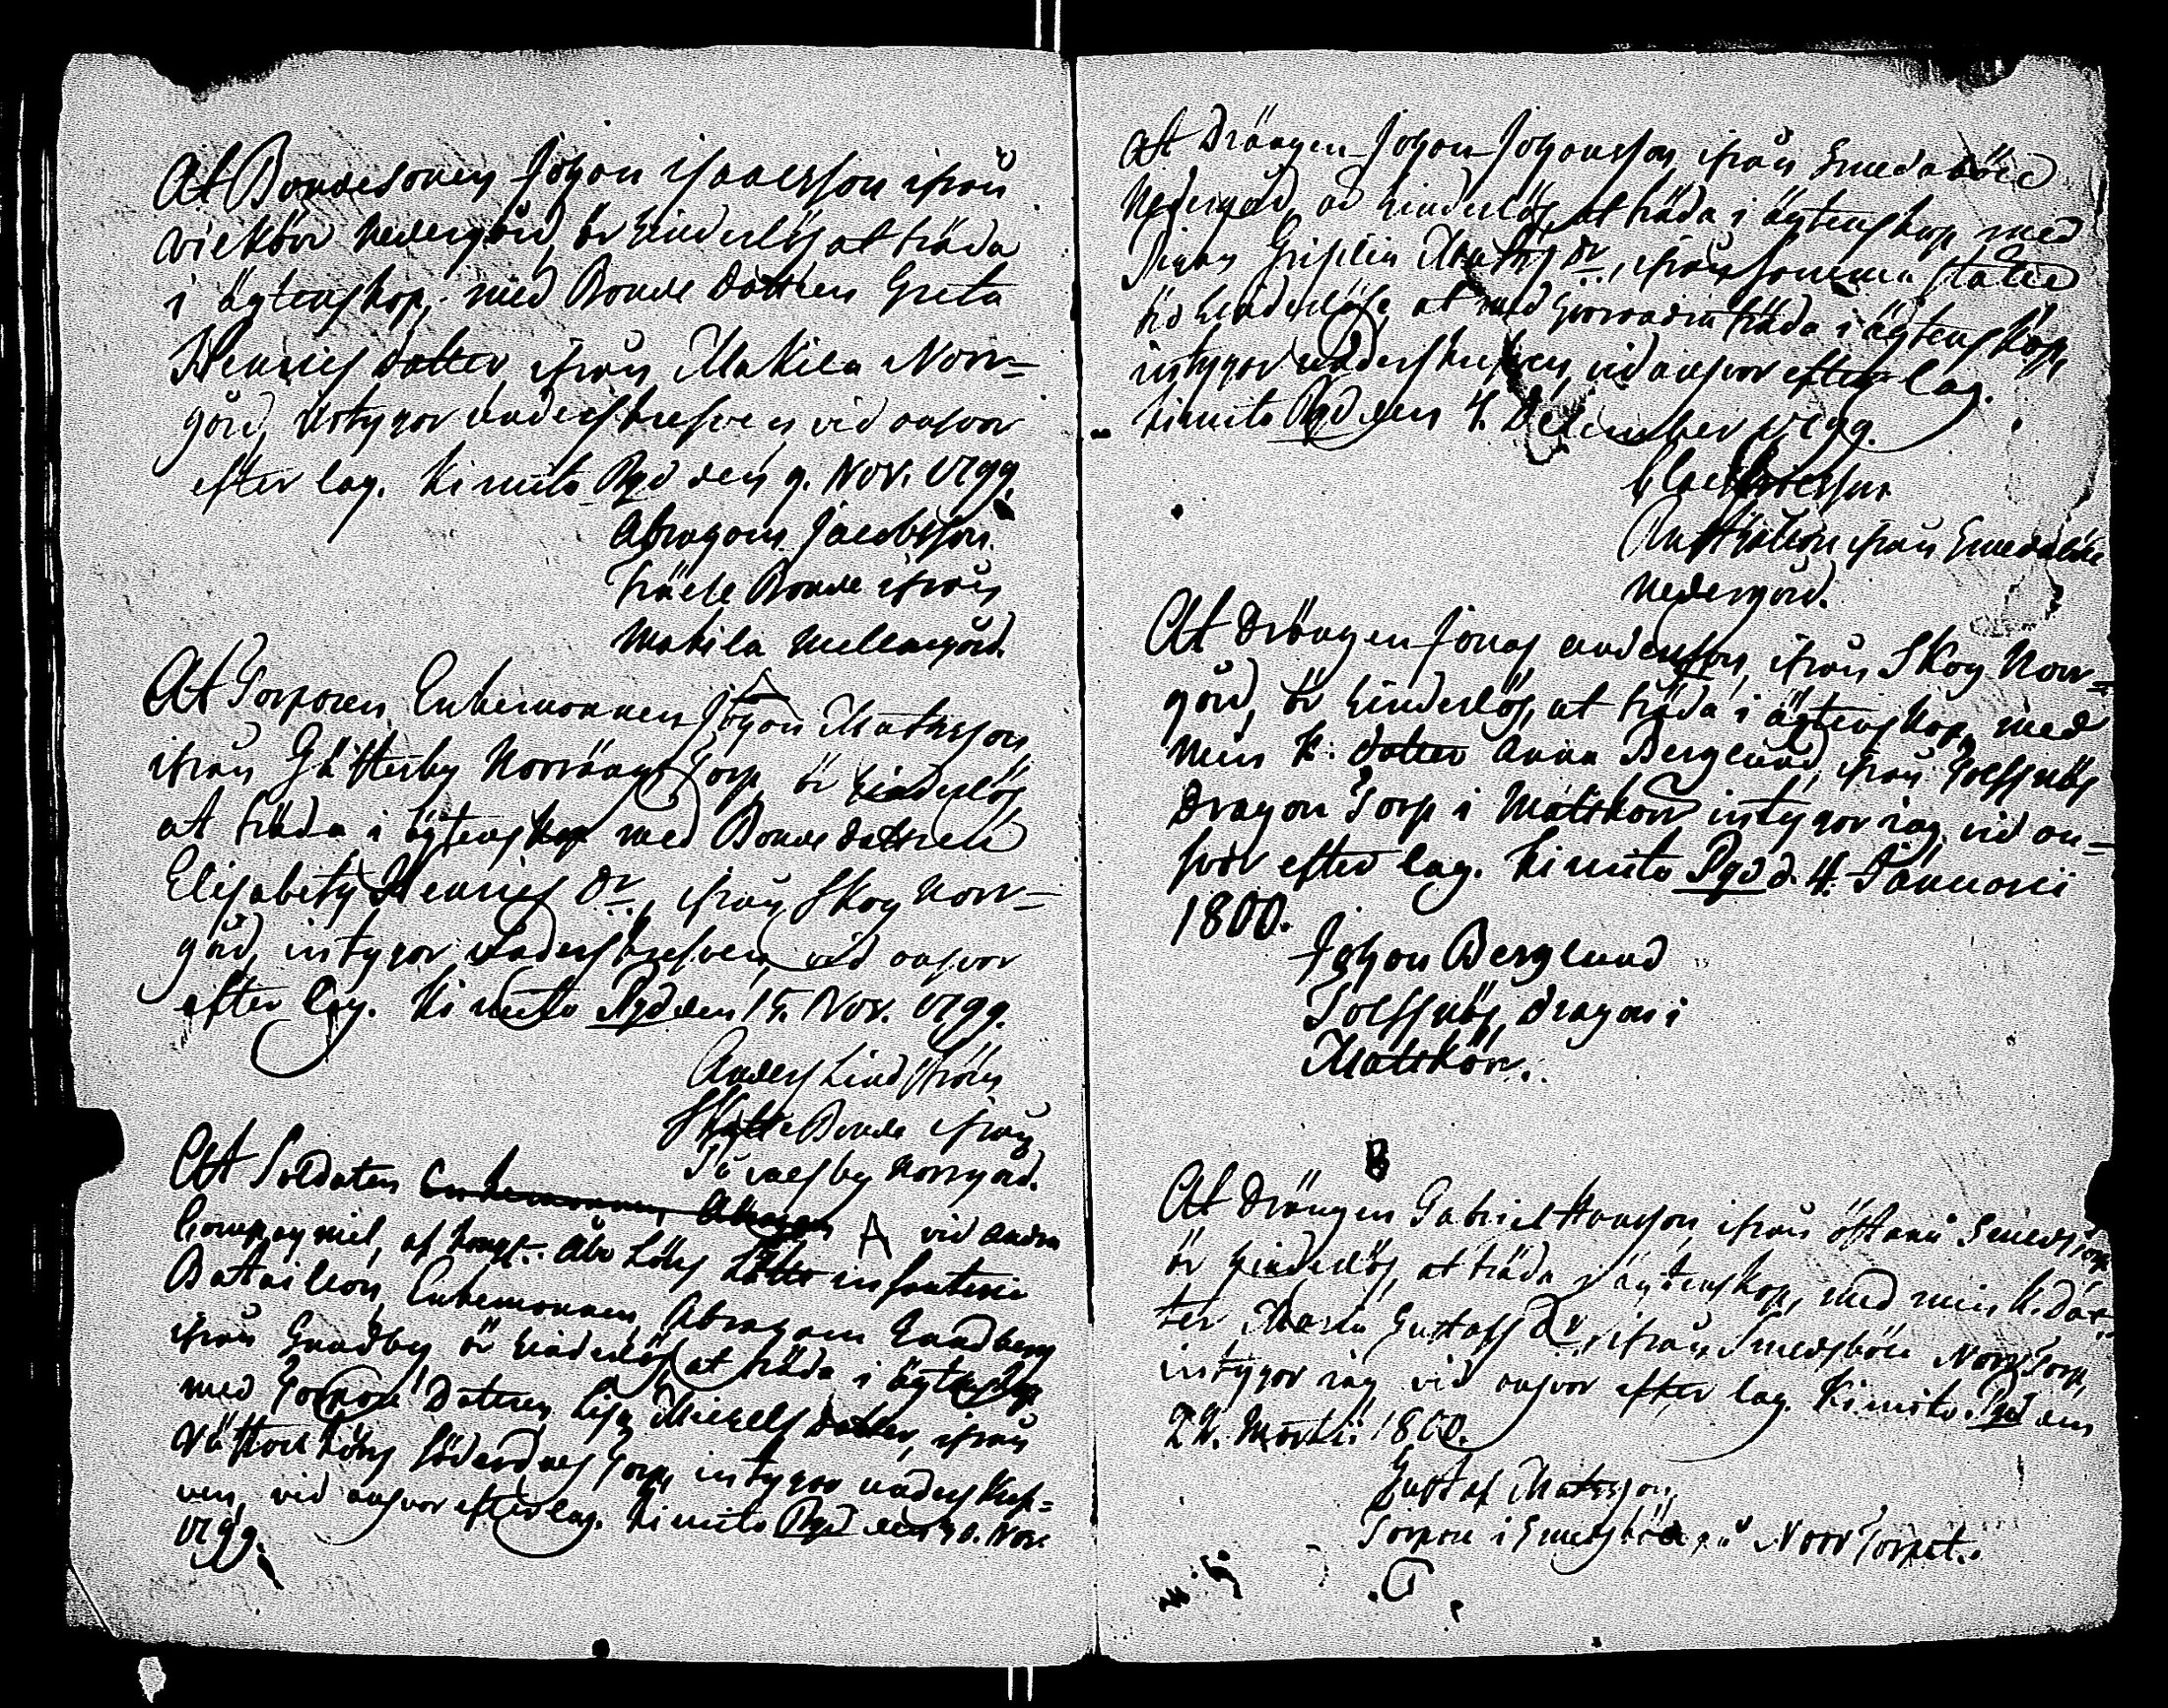 At Bondesonen Johan Isaacsson ifrån
Wiekärr Nedergård, är hinderlös at träda
i ägtenskap, med Bonde Dottren Greta
Henrics dotter, ifrån Makila Norr=
gård, intygar underskrefven, vid answar
efter lag. Kimito Pgd den 9. Nov. 1799.
Abraham Jacobsson.
Bonde ifrån
Makila Mellangård.
At Torparen Enkemannen Johan Mattsson,
ifrån Gästterby Norrängs Torp, är hinderlös
at träda i ägtenskap med Bonde dottren
Elisabeth Henrics Dr, ifrån Skog Norr=
gård, intygar underskrefven, vid answar
efter lag. Kimito Pgd den 15. Nov. 1799.
Anders Lindström
Skatte Bonde ifrån
Norrgård.
At Soldaten A vid andra
Compagniet, af Kongl. Åbo Läns Lätta infanterie
Bataillon, Enkemannen Abraham Sandberg
ifrån Sundby är hinderlös, at träda i ägtenskap
med Torpare Dottren Lisa Michels dotter, ifrån
Söder Torp, intygar underskref=
ven, vid answar efter lag. Kimito Pgd den 30. Nov.
1799.
At Drängen Johan Johansson, ifrån Smedaböle
Nedergård, är hinderlös, at träda i ägtenskap med
Pigan Mats Dr, ifrån samma ställe
är hinderlös, at med hvarandra träda i ägtenskap,
intygar underskrefven, vid answar efter lag.
Kimito Pgd den 4. December 1799.
ifrån Smedaböle
Nedergård.
At Drängen Jonas Andersson, ifrån Skog Norr=
gård, är hinderlös, at träda i ägtenskap, med
min K: dotter Anna Berglund, ifrån
Dragon Torp i Mattkärr intygar jag, vid an=
svar efter lag. Kimito Pgd d. 4. Januarii
1800.
Johan Berglund
Dragon i
Mattkärr.
B
At Drängen Gabriel Hansson, ifrån
är hinderlös, at träda i ägtenskap, med min K. Dot=
ter Maria Gustafs Dr, ifrån Smedsböle Norr Torp,
intygar jag vid answar efter lag. Kimito Pgd den
22. Martii 1800.
Gustaf Mattsson,
Torpare i Smedsböle, å Norr Torpet.